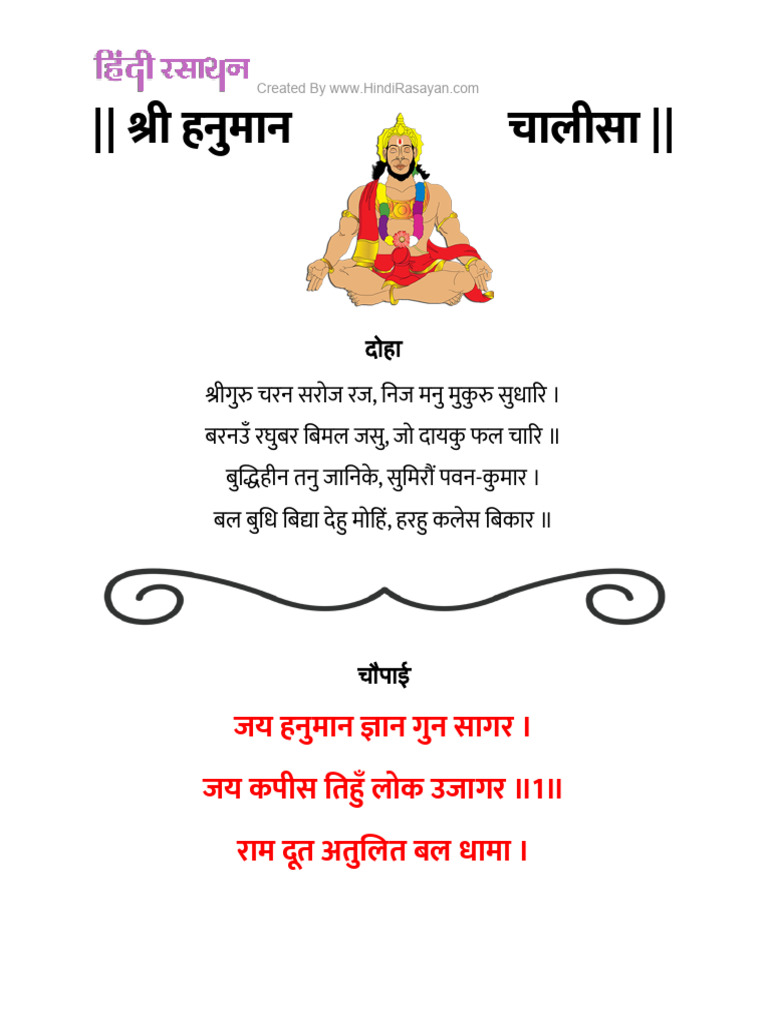 हिंदी रसायन
Created By www.HindiRasayan.com
|| श्री हनुमान चालीसा ||
दोहा
श्रीगुरु चरन सरोज रज, निज मनु मुकुरु सुधारि ।
बरनउँ रघुबर बिमल जसु, जो दायकु फल चारि ॥
बुद्धिहीन तनु जानिके, सुमिरौं पवन-कुमार ।
बल बुधि बिद्या देहु मोहिं, हरहु कलेस बिकार ॥
चौपाई
जय हनुमान ज्ञान गुन सागर ।
जय कपीस तिहुँ लोक उजागर ॥1॥
राम दूत अतुलित बल धामा ।